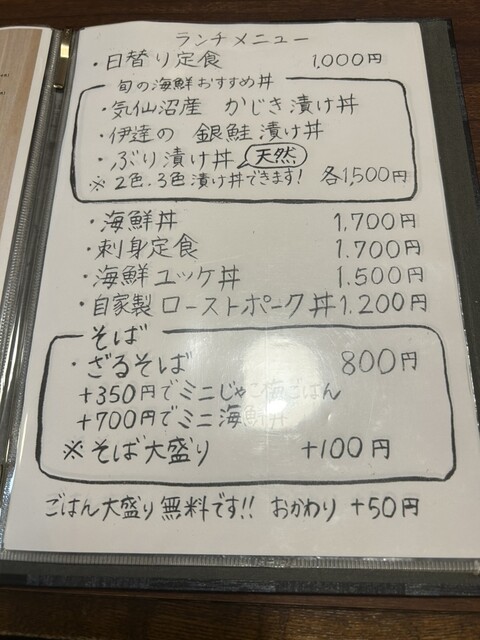 ランチメニュー
・日替り定食 1,000円
旬の海鮮おすすめ丼
・気仙沼産 かじき漬け丼
・伊達の 銀鮭漬け丼
・ぶり漬け丼 天然
※2色.3色漬け丼できます! 各1,500円
・海鮮丼 1,700円
・刺身定食 1.700円
・海鮮ユッケ丼 1.500円
・自家製 ローストポーク丼 1.200円
そば
・ざるそば 800円
+350円でミニじゃこ梅ごはん
+700円でミニ海鮮丼
※そば大盛り +100円
ごはん大盛り無料です!! おかわり +50円